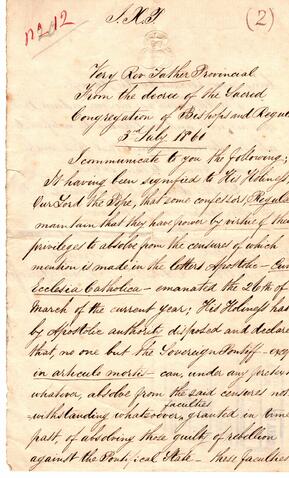 no 12
(2)
Very Rev Father Provincial
From the decree of the Sacred
Congregation of Bishops and Regu
5th July 1861
I communicate to you the following;
It having been signified to His Holiness
Our Lord the Pope, that some confessors Regula
maintain that they have power by virtue of thei
privileges to absolve from the censures of which
mention is made in the letters Apostolic - Cum
Ecclesia Catholica - emanated the 26th of
March of the current year; His Holiness has
by Apostolic authority disposed and declare
that, no one but the Sovereign Pontiff - exce
in articulo mortis - can, under any pretex
whatever, absolve from the said censures not
faculties
-withstanding whatsoever, granted in time
past, of absolving those guilty of rebellion
against the Pontifical State - these faculties